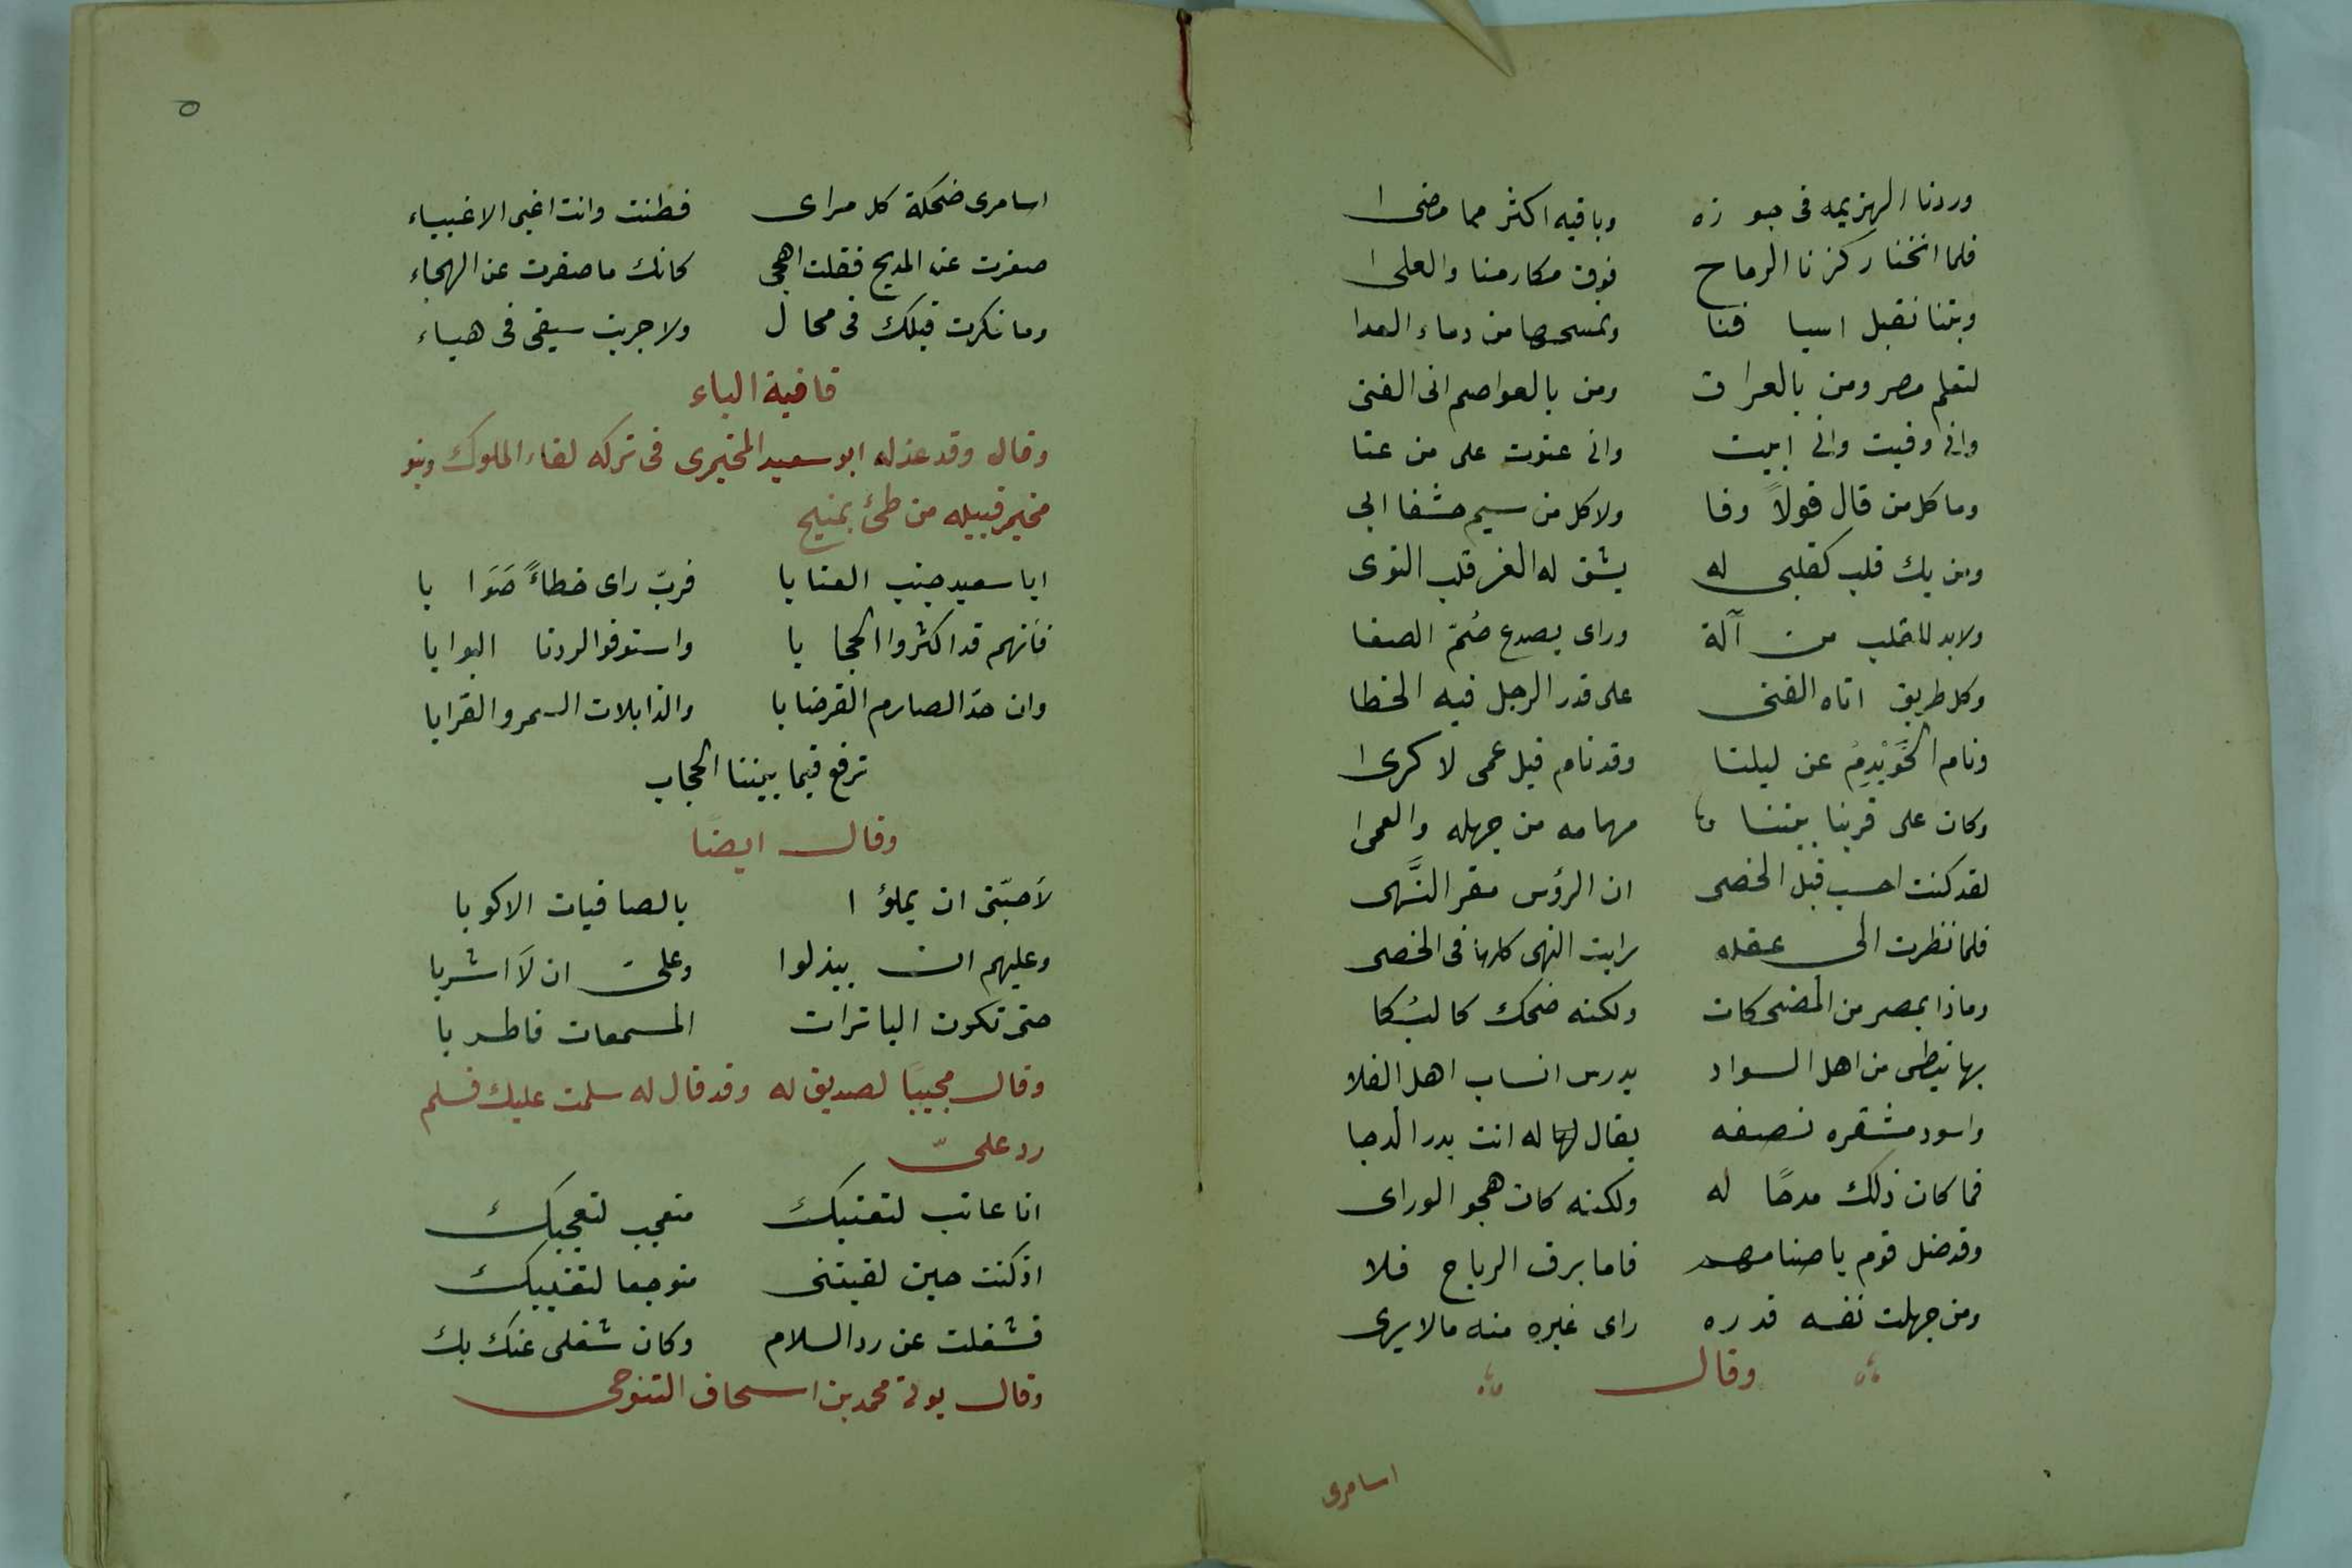 وردنا الهزيمه فى جوزه وباقيه اكثر مما مضىا
فلما انخنا ركزنا الرماح فوق مكارمنا والعلىا
وبتنا نقبل اسيافنا ونمسحها من دماء العدا
لتعلم مصر ومن بالعراق ومن بالعواصم انى الفتى
وانى وفيت وانى ابيت وانى عتوت على من عتا
وما كل من قال قولاً وفا ولا كل من سيم خشفا ابى
ومن يك قلب كقلبى له يشق له الغر قلب التوى
ولابد للقلب من آلة وراى يصدع صُمّ الصفا
وكل طريق اتاه الفتى على قدر الرجل فيه الخطا
ونام الخُوَيْدِمُ عن ليلنا وقد نام قبل عمى لا كرىا
وكان على قربنا بيننا مهامه من جهله والعمىا
لقد كنت احسب قبل الخصى ان الرؤس مقر النَّهى
فلما نظرت الى عقله رايت النهى كلها فى الخصى
وماذا بمصر من المضحكات ولكنه ضحك كالبُكا
بها نبطى من اهل السواد يدرس انساب اهل الفلا
واسود مشقره نصفه يقال له انت بدر الدجا
فما كان ذلك مدحًا له ولكنه كان هجو الوراى
وقد ضل قوم باصنامهم فاما برق الرياح فلا
ومن جهلت نفسه قدره راى غيره منه مالايرى
وقال
اسامرى
٥
اسامرى ضحكة كل مراى فطنت وانت اغبى الاغبياء
صغرت عن المديح فقلت اهجى كانك ما صغرت عن الهجاء
وما نكرت قبلك فى محال ولا جربت سيفى فى هباء
قافية الباء
وقال وقد عذله ابو سعيد المخيمرى فى تركه لقاء الملوك وبنو
مخيمر قبيله من طئ بمنبج
ابا سعيد جنب العتابا فربّ راى خطاءً صَوَابا
فانهم قد اكثروا الحجابا واستوقفوا لردنا البوابا
وان حدّ الصارم القرضابا والذابلات السمر والقرابا
ترفع فيما بيننا الحجاب
وقال ايضًا
لاَحبّتى ان يملؤا بالصافيات الاكوبا
وعليهم ان يبذلوا وعلىّ ان لاَ اشربا
حتى تكون الباترات المسمعات فاطربا
وقال مجيبًا لصديق له وقد قال له سلمت عليك فسلم
رد علىّ
انا عاتب لتعتبك متعجب لتعجبك
اذ كنت حين لقيتنى متوجعا لتغيبك
فشغلت عن رد السلام وكان شغلى عنك بك
وقال يوثى محمد بن اسحاق التنوخى